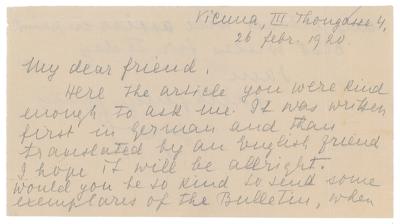 Vienna, III Thongasse 4,
26 febr. 1920.
My dear friend.
Here the article you were kind
enough to ask me. It was written
first in German and than
translated by an English friend
I hope it will be allright.
Would you be so kind to send some
exemplares of the Bulletin, when